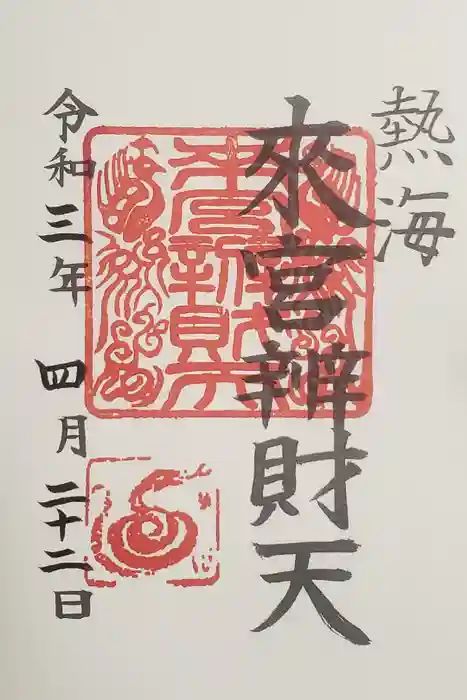 熱海
來宮辨財天
令和三年四月二十二日